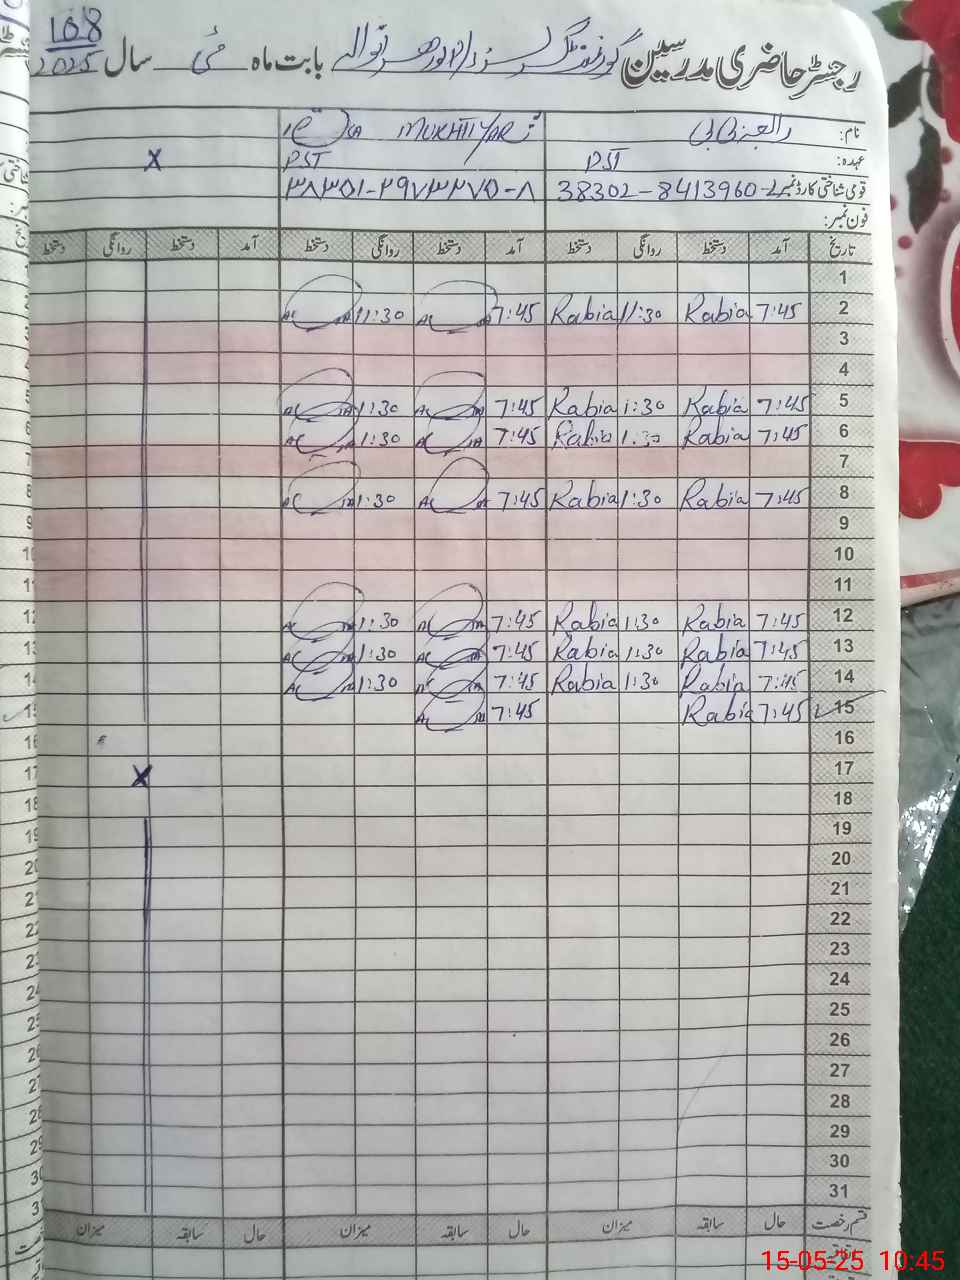 108
رجسٹر حاضری مدرسین گورنمنٹ گرلز بابت ماہ مئی سال 2025
نام: رابعہ بی بی MUKHTIYAR
عہدہ: PST PST
قومی شناختی کارڈ نمبر 38302-8413960-2 ۳۸۳۵۱-۲۹۷۳۲۷۵-۸
فون نمبر:
تاریخ آمد دستخط روانگی دستخط آمد دستخط روانگی دستخط آمد دستخط روانگی دستخط
1
2 7:45 Rabia 11:30 Rabia 7:45 11:30
3
4
5 7:45 Rabia 1:30 Rabia 7:45 1:30
6 7:45 Rabia 1:30 Rabia 7:45 1:30
7
8 7:45 Rabia 1:30 Rabia 7:45 1:30
9
10
11
12 7:45 Rabia 1:30 Rabia 7:45 1:30
13 7:45 Rabia 1:30 Rabia 7:45 1:30
14 7:45 Rabia 1:30 Rabia 7:45 1:30
15 7:45 Rabia 7:45
16
17
18
19
20
21
22
23
24
25
26
27
28
29
30
31
قسم رخصت حال سابقہ میزان حال سابقہ میزان حال سابقہ میزان
15-05-25 10:45